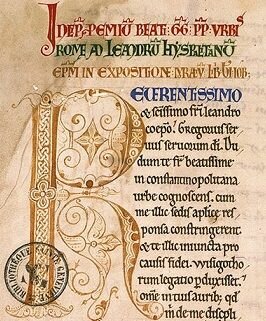 INCIP PEMIŪ BEATI GG̅ PP̅ URBIS
ROME AD LEANDRŪ HYSPETINŪ
EPM̅ IN EXPOSITION MRAŪ LIB̅
REUERENTISSIMO
& sc̅issimo fr̅i leandro
coep̅o. Gregorius ser
uus seruorum di̅. Du
dum te fr̅ beatissime
in constantinopolitana
urbe cognoscens. cum
me illic sedis aplice res
ponsa constringerent.
& te illic iniuncta pro
causis fidei wisigotho
rum legatio p̅duxisset.
om̅e in tuis aurib; qd̅
m̅ de me displi